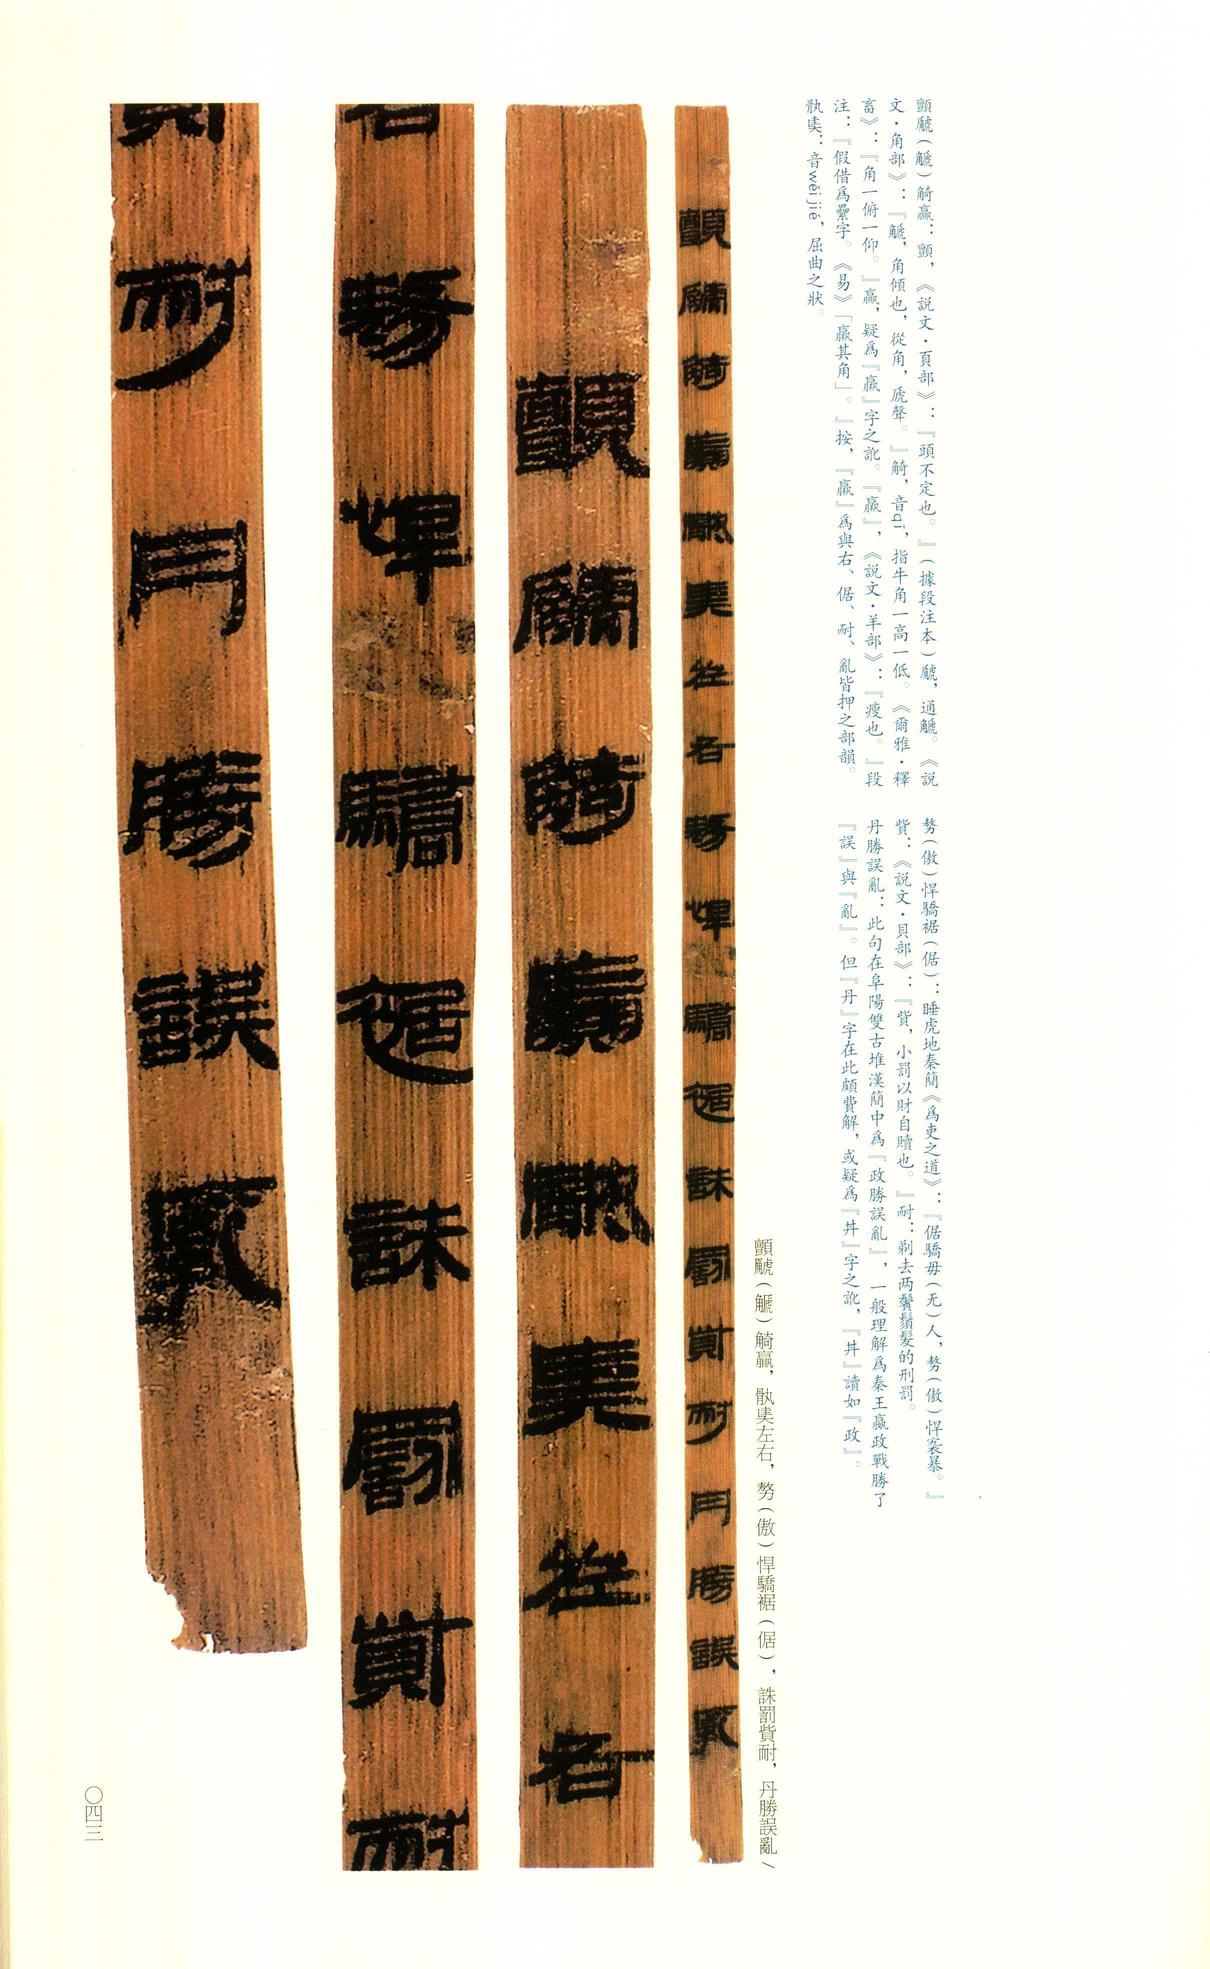 顫觻(觿)觭贏:顫,《説文·頁部》:『頭不定也。』(據段注本)觻,通觿。《説
文·角部》:『觿,角傾也,從角,虒聲。』觭,音qī,指牛角一高一低。《爾雅·釋
畜》:『角一俯一仰。』贏,疑爲『羸』字之訛。『羸』,《説文·羊部》:『瘦也。』段
注:『假借爲纍字。《易》「羸其角」。』按,『羸』爲與右、倨、耐、亂皆押之部韻。
骫奊:音wěi jié,屈曲之狀。
嫯(傲)悍驕裾(倨):睡虎地秦簡《爲吏之道》:『倨驕毋(无)人,嫯(傲)悍袤暴。』
貲:《説文·貝部》:『貲,小罰以財自贖也。』耐:剃去兩鬢鬚髮的刑罰。
丹勝誤亂:此句在阜陽雙古堆漢簡中爲『政勝誤亂』,一般理解爲秦王嬴政戰勝了
『誤』與『亂』。但『丹』字在此頗費解,或疑爲『井』字之訛,『井』讀如『政』。
顫觻(觿)觭贏,骫奊左右,嫯(傲)悍驕裾(倨),誅罰貲耐,丹勝誤亂/
顫觻觭贏骫奊左右嫯悍驕裾誅罰貲耐丹勝誤亂
顫觻觭贏骫奊左右
右嫯悍驕裾誅罰貲耐
耐丹勝誤亂
〇四三